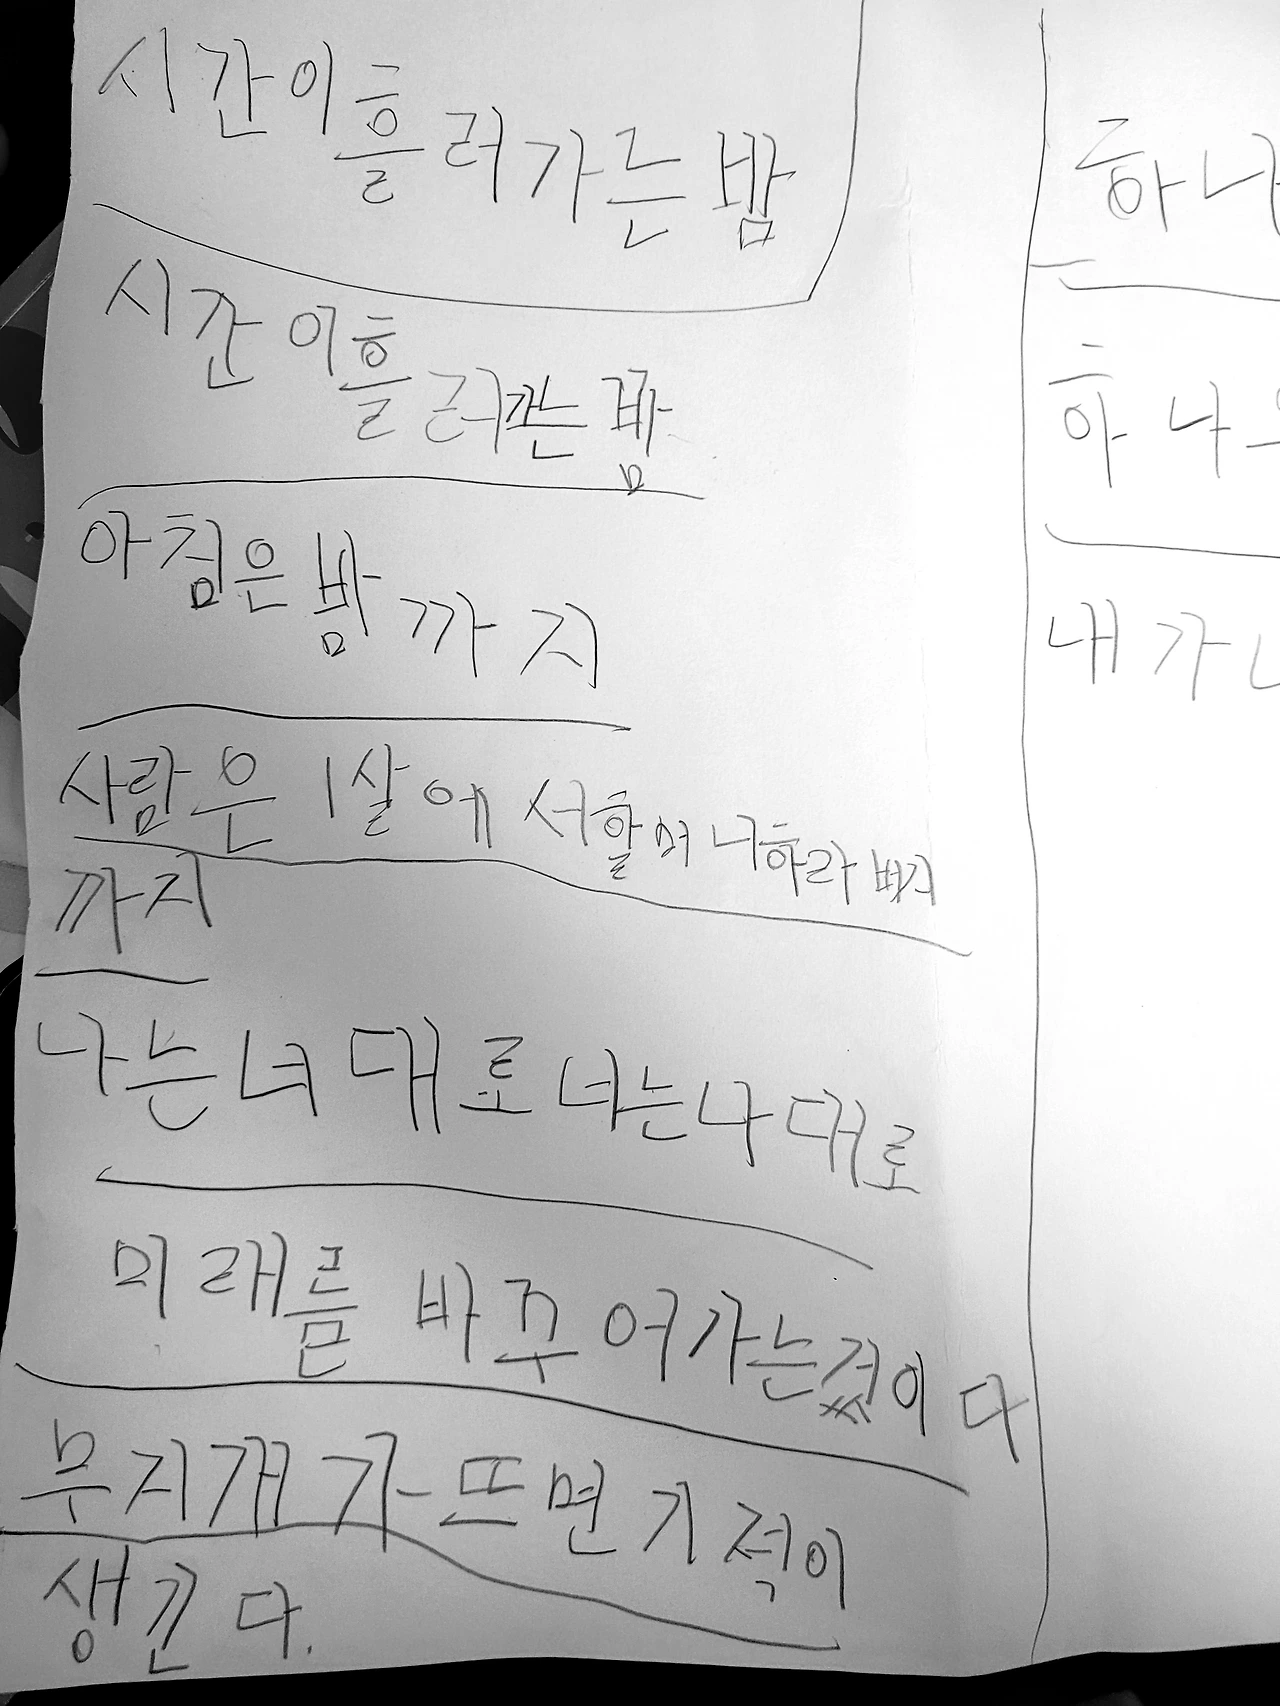 시간이흘러가는밤
시간이흘러가는밤
아침은밤까지
사람은 1살에서할머니하라버지
까지
나는너대로너는나대로
미래를 바꾸어가는것이다
무지개가뜨면기적이
생긴다.
하나
하나
내가